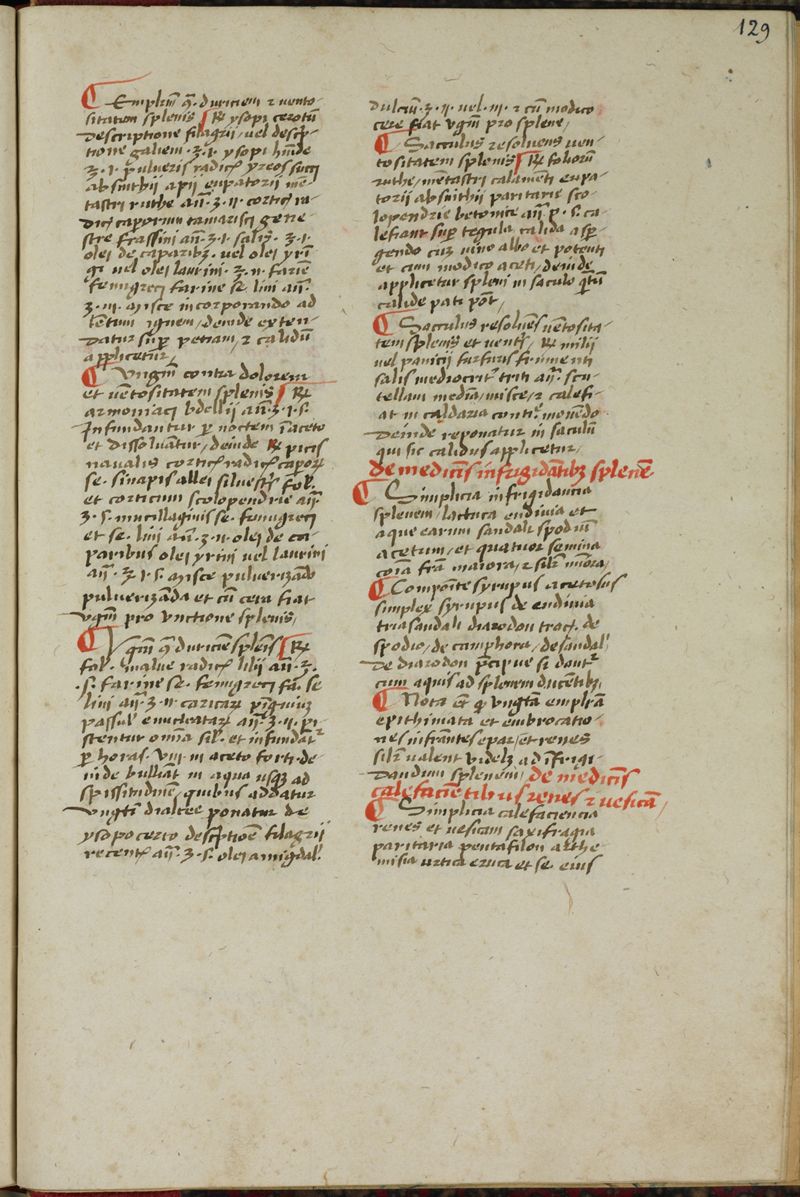 129
¶ Emplm̄ q̄. duriciem ⁊ vento-
sitatem splenis ℞ ysopi cerotū
descriptione filagrii / vel descp̄-
tione galieni . ʒ . i . ysopi hūide
ʒ . i . pulueris radic̄ yreos succi
absinthij apii eupatorii mē-
tastri ruthe añ . ʒ . ii . cortic̄ ra-
dic̄ caporum tamarisci gene-
stre frassini añ . ʒ . i . salis . ʒ . i .
olei de caparibȝ . vel olei yri-
ni vel olei laurini . ʒ . ii . farine
fenugreci farine se. lini añ .
ʒ . iii . misce incorporando ad
lentum ignem / deinde exten-
datur sup̄ petiam / ⁊ calidū
applicetur /
¶ Vngm̄ contra dolorem
et vētositatem splenis / ℞
armoniaci bdellij añ . ʒ . i . s .
Infundantur p noctem ī aceto
et dissoluāntur / deinde ℞ picis
naualis cortic̄ radic̄ caporꝝ
se. sinapis allei siluestr̄ fol.
et corticum scolopendrie añ
ʒ . s . mucillaginis se. fenugreci
et se. lini añ . ʒ . ii . olei de ca-
paribus olei yrini vel laurini
añ . ʒ . i . s . misce puluerizādo
pulueriząda et cū cera fiat
vgm̄ pro vnctione splenis /
¶ Vgm̄ q̄ duriciē splēis ℞
fol. malue radic̄ lilij añ . ʒ .
. s . farine se. fenugreci fā. se
lini añ . ʒ . ii caricarꝝ pinguiū
passul. enucleatarꝝ añ . ʒ . ii . pi-
stentur omīa sil. et infundāt̄
p horas . viii . in aceto forti . de-
inde bulliāt in aqua usqȝ ad
spissitudinē / quibus addatur
vngti dialtee ponatur de
ysopo ceroto descp̄tiōe filagrij
recent̄ añ . ʒ . s . olei amigdal.
dulciū . ʒ . ii . vel . iii . ⁊ cū modico
cere fiat vgm̄ pro splene /
¶ Sacculus resoluens uen-
tositatem splenis / ℞ folioru̅
ruthe / mētastri calamēti eupa-
torii absinthij paritarie sco-
lopendrie betonice añ p̄ . s . ca-
lefiant sup̄ tegula calida asp̄-
gendo cuȝ vino albo et potenti
et cum modico aceti / deinde
applicetur spleni in saculo q̄tū
calide pati pōt /
¶ Sacculus resoluēs uētosita-
tem splenis et ventr̄ / ℞ milij
vel panicij furfuris frumenti
salis mediocrit̄ triti añ . scu-
tellam mediā / misce / ⁊ calefi-
at in caldaria contīe mouēdo
deinde reponatur in saculū
qui sic calidus applicetur /
De medicīs infrigidātibȝ splenē
¶ Simplicia infrigidancia
splenem / lactuca endiuia et
aque earum sandali spodiū
acetum / et quatuor semina
cōia frā maiora / ⁊ sil̄r mīora /
¶ Compoīte syrupus acetosus
simplex syrupus de endiuia
triasandali diarodon troc̄ . de
spodio / de camphora / de sandal.
De diarodon p̄cipue si dant̄
cum aquis ad splenem ducētibȝ
¶ Nota et̄ q̄ vngtā emplrā
epithimata et embrocatio-
nes infrāntes epar / et renes
sil̄r valent videlȝ ad īfrigi-
dandum splenem / De medicīs
calefaciētibus renes ⁊ vesicā /
¶ Simplicia calefaciencia
renes et vesicam saxifraga
paritaria pentafilon arthe-
misia urtica eruca et se. eius